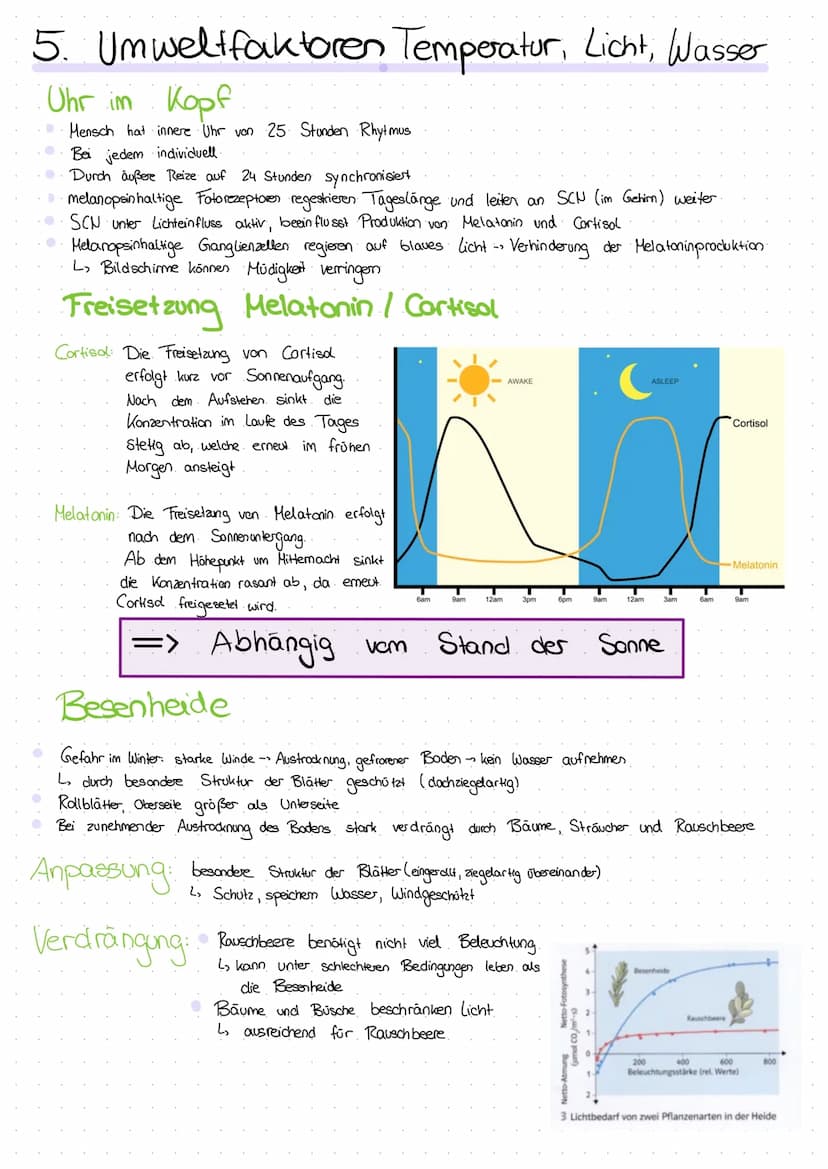 5. Umweltfaktoren Temperatur, Licht, Wasser
Uhr im Kopf
Mensch hat innere Uhr von 25 Stunden Rhytmus
Bei jedem individuell
Durch äußere Reize auf 24 Stunden synchronisiert
melanopsinhaltige Fotorezeptoren regestrieren Tageslänge und leiten an SCN (im Gehirn) weiter
SCN unter Lichteinfluss aktiv, beeinflusst Produktion von Melatonin und Cortisol
Melanopsinhaltige Ganglienzellen regieren auf blaues Licht -> Verhinderung der Melatoninproduktion
↳ Bildschirme können Müdigkeit verringern
Freisetzung Melatonin / Cortisol
Cortisol: Die Freisetzung von Cortisol
erfolgt kurz vor Sonnenaufgang.
Nach dem Aufstehen sinkt die
Konzentration im Laufe des Tages
stetig ab, welche erneut im frühen
Morgen ansteigt
Melatonin: Die Freisetzung von Melatonin erfolgt
nach dem Sonnenuntergang.
Ab dem Höhepunkt um Mitternacht sinkt
die Konzentration rasant ab, da erneut
Cortisol freigesetzt wird.
AWAKE
ASLEEP
Cortisol
Melatonin
6am 9am 12am 3pm 6pm 9am 12am 3am 6am 9am
=> Abhängig vom Stand der Sonne
Besenheide
Gefahr im Winter: starke Winde -> Austrocknung, gefrorener Boden -> kein Wasser aufnehmen
↳ durch besondere Struktur der Blätter geschützt (dachziegelartig)
Rollblätter, Oberseite größer als Unterseite
Bei zunehmender Austrocknung des Bodens stark verdrängt durch Bäume, Sträucher und Rauschbeere
Anpassung: besondere Struktur der Blätter (eingerollt, ziegelartig übereinander)
↳ Schutz, speichern Wasser, Windgeschützt
Verdrängung: Rauschbeere benötigt nicht viel Beleuchtung
↳ kann unter schlechteren Bedingungen leben als
die Besenheide
Bäume und Büsche beschränken Licht
↳ ausreichend für Rauschbeere
Netto-Atmung Netto-Fotosynthese
(µmol CO₂/m²·s)
5
4
3
2
1
0
1
2
Besenheide
Rauschbeere
200 400 600 800
Beleuchtungsstärke (rel. Werte)
3 Lichtbedarf von zwei Pflanzenarten in der Heide